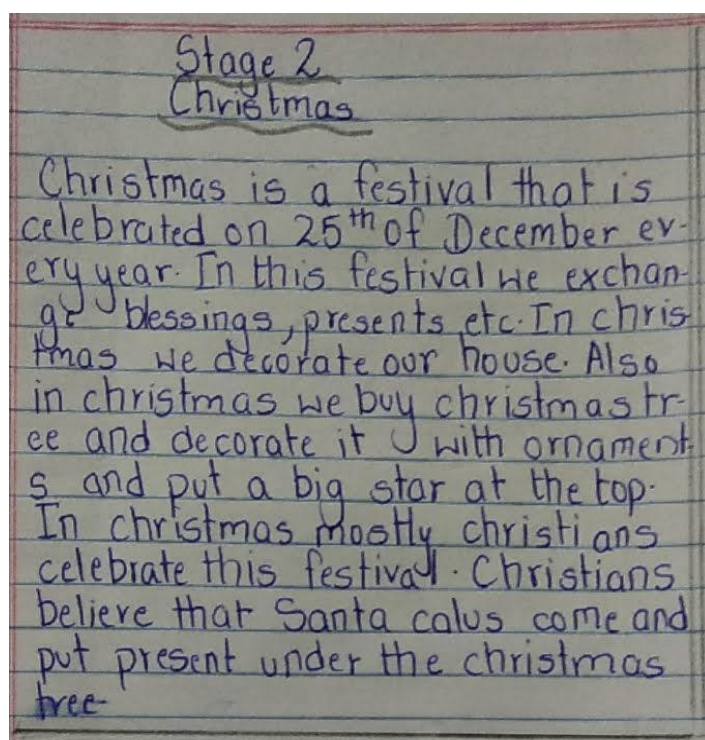 Stage 2
Christmas
Christmas is a festival that is
celebrated on 25th of December ev-
ery year. In this festival we exchan-
ge blessings, presents etc. In chris
tmas we decorate our house. Also
in christmas we buy christmas tr-
ee and decorate it with ornament
s and put a big star at the top.
In christmas mostly christians
celebrate this festival. Christians
believe that Santa calus come and
put present under the christmas
tree